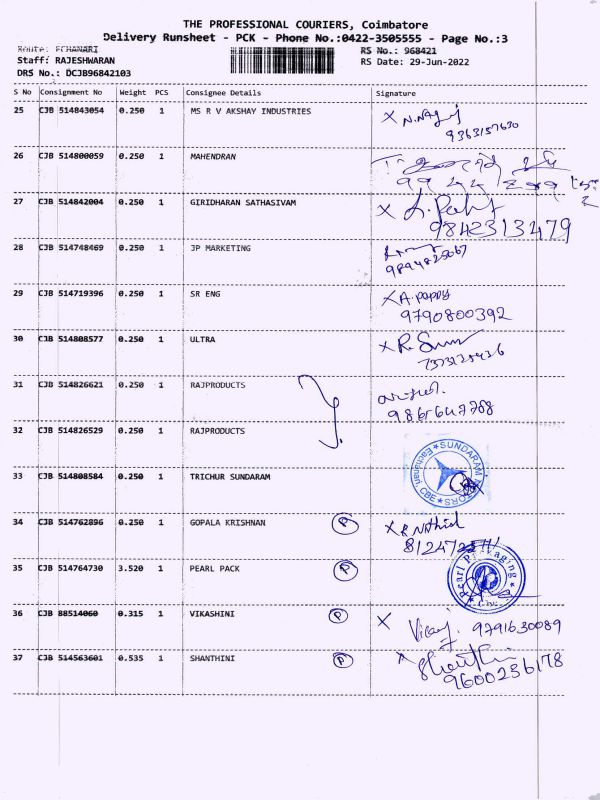 THE PROFESSIONAL COURIERS, Coimbatore
Delivery Runsheet - PCK - Phone No.:0422-3505555 - Page No.:3
Route: ECHANARI
RS No.: 968421
Staff: RAJESHWARAN
RS Date: 29-Jun-2022
DRS No.: DCJB96842103
S No Consignment No Weight PCS Consignee Details Signature
25 CJB 514843054 0.250 1 MS R V AKSHAY INDUSTRIES
X
9363157630
26 CJB 514800059 0.250 1 MAHENDRAN
27 CJB 514842004 0.250 1 GIRIDHARAN SATHASIVAM
X
9842313479
28 CJB 514748469 0.250 1 JP MARKETING
9894825067
29 CJB 514719396 0.250 1 SR ENG
X A. pappy
9790800392
30 CJB 514808577 0.250 1 ULTRA
X R.
31 CJB 514826621 0.250 1 RAJPRODUCTS
32 CJB 514826529 0.250 1 RAJPRODUCTS
33 CJB 514808584 0.250 1 TRICHUR SUNDARAM
SUNDARAM
Eachanari, CBE
34 CJB 514762896 0.250 1 GOPALA KRISHNAN P
X
35 CJB 514764730 3.520 1 PEARL PACK P
Pearl Packaging
Cbe
36 CJB 88514060 0.315 1 VIKASHINI P
X
9791630089
37 CJB 514563601 0.535 1 SHANTHINI P
X Shanthini
9600236178